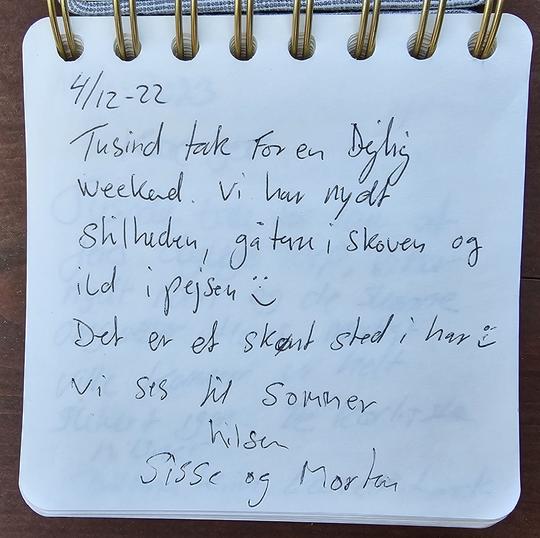 4/12-22
Tusind tak For en Dejlig
weekend. Vi har nydt
stilheden, gåture i skoven og
ild i pejsen :)
Det er et skønt sted i har :)
Vi ses til sommer
hilsen
Sisse og Morten